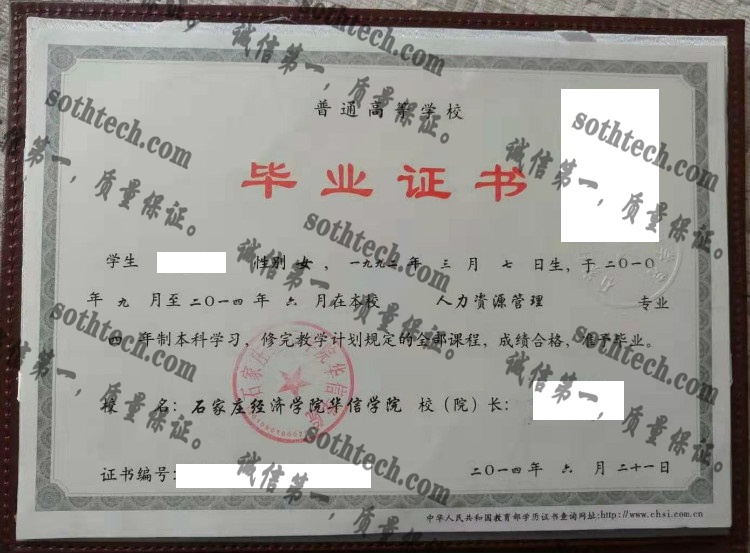 普通高等学校
毕业证书
学生 性别 女 ，一九九二年 三 月 七 日生，于二〇一〇
年 九 月至二〇一四年 六 月在本校 人力资源管理 专业
四 年制本科学习，修完教学计划规定的全部课程，成绩合格，准予毕业。
校 名：石家庄经济学院华信学院 校（院）长：
证书编号：
二〇一四年 六 月二十一日
中华人民共和国教育部学历证书查询网址:http://www.chsi.com.cn
石家庄 院华信
sothtech.com
诚信第一，质量保证。
sothtech.com
诚信第一，质量保证。
sothtech.com
诚信第一，质量保证。
sothtech.com
诚信第一，质量保证。
sothtech.com
诚信第一，质量保证。
sothtech.com
诚信第一，质量保证。
sothtech.com
第一，质量保证。